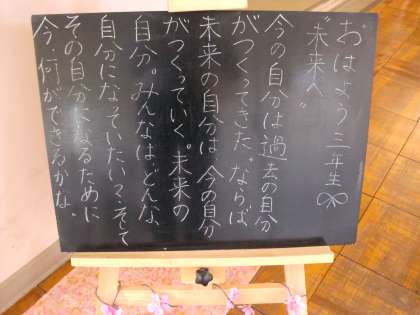 おはよう三年生
"未来へ"
今の自分は過去の自分
がつくってきた。ならば
未来の自分は今の自分
がつくっていく。未来の
自分。みんなはどんな
自分になっていたい？そして
その自分になるために
今、何ができるかな。